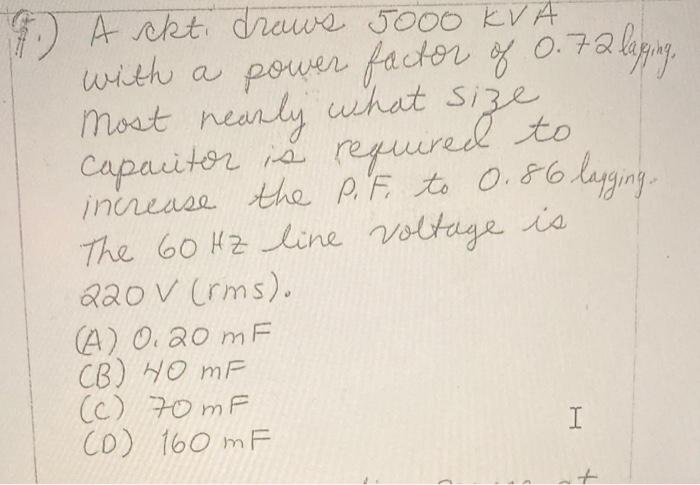 7.) A ckt. draws 5000 KVA
with a power factor of 0.72 lagging.
Most nearly what size
capacitor is required to
increase the P.F. to 0.86 lagging.
The 60 HZ line voltage is
220 V (rms).
(A) 0.20 mF
(B) 40 mF
(C) 70 mF
(D) 160 mF